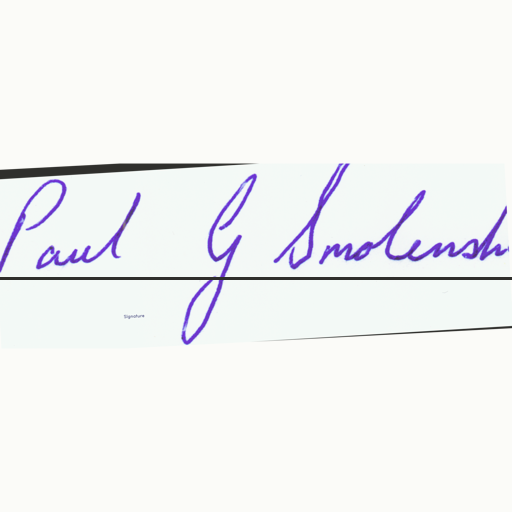 Paul G Smolensk
Signature